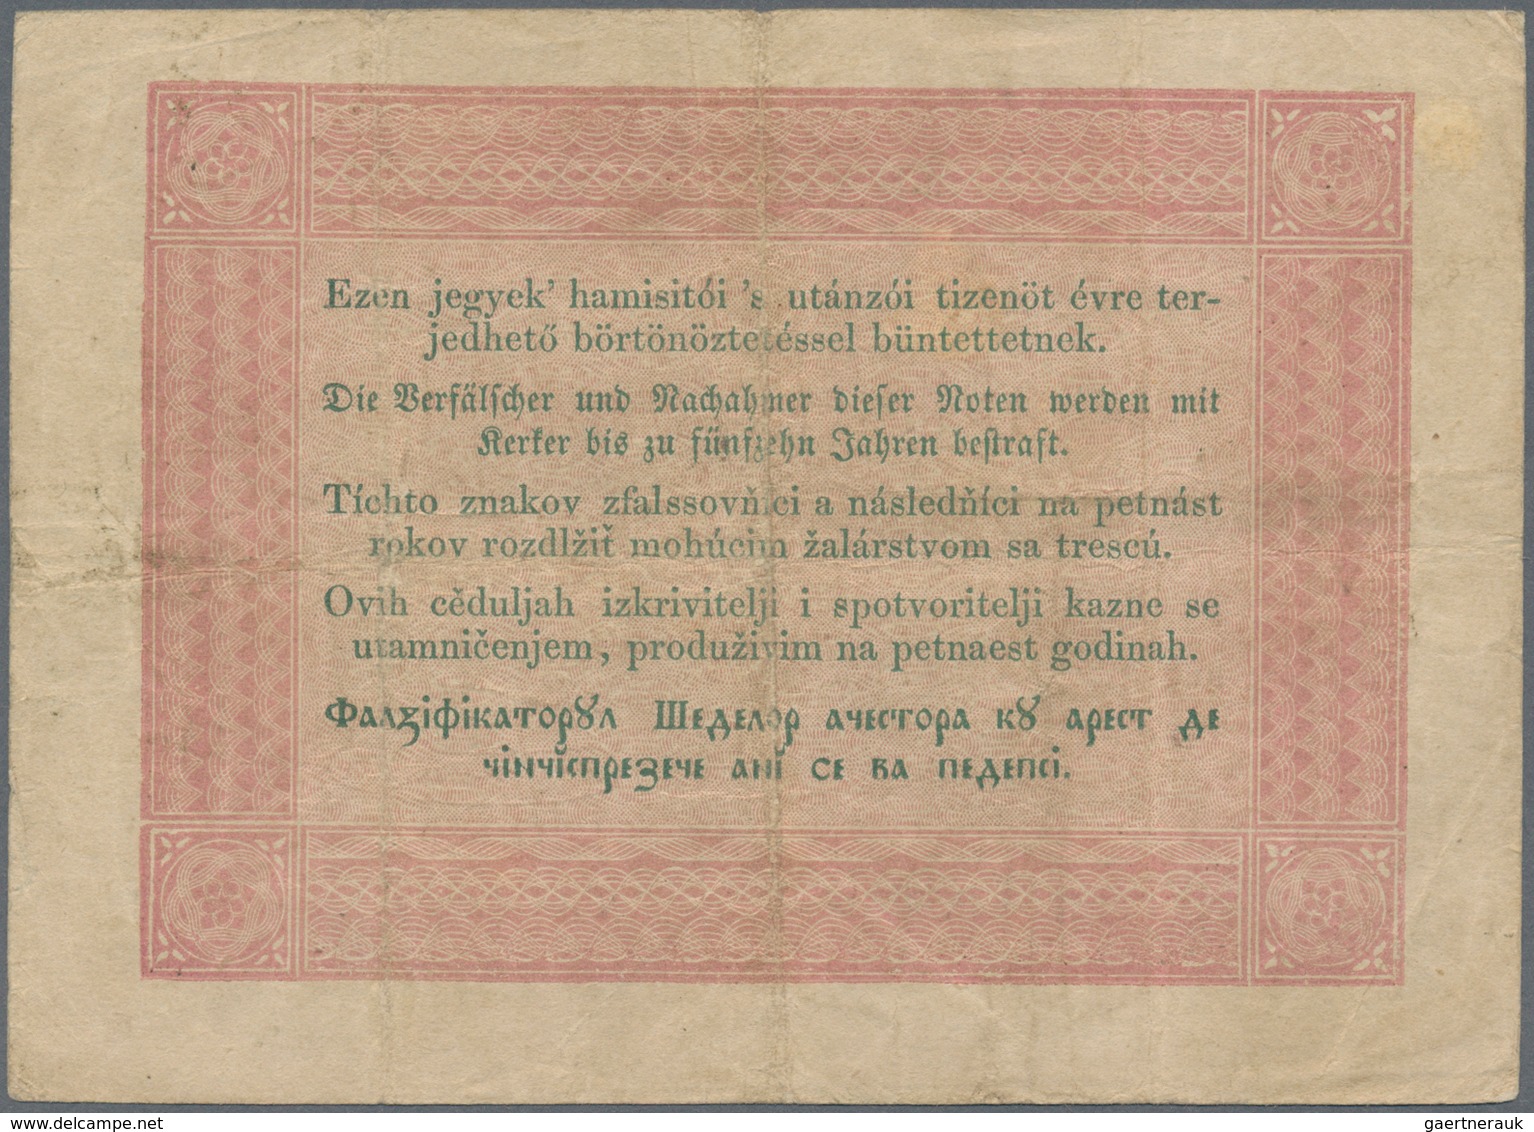 Ezen jegyek' hamisitói 's utánzói tizenöt évre ter-
jedhető börtönöztetéssel büntettetnek.
Die Verfälscher und Nachahmer dieser Noten werden mit
Kerker bis zu fünfzehn Jahren bestraft.
Tíchto znakov zfalssovňíci a následňíci na petnást
rokov rozdlžiť mohúcim žalárstvom sa trescú.
Ovih cěduljah izkrivitelji i spotvoritelji kazne se
utamničenjem, produživim na petnaest godinah.
Фалꙁіфікаторꙋл Шеделор ачестора кꙋ арест де
чінчіспрезече ані се ва педепсі.
gaertnerauk